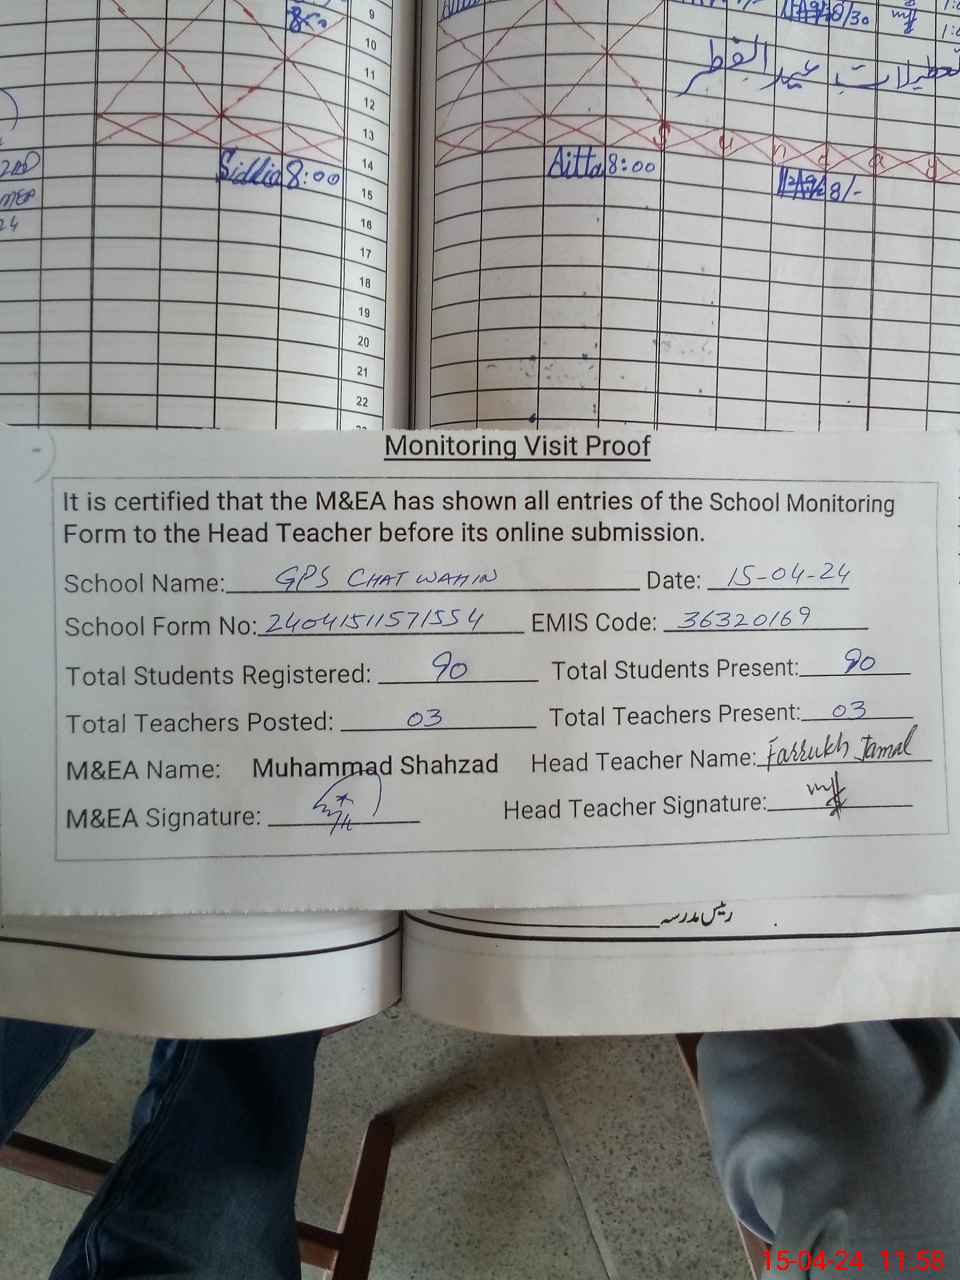 8:00
9
8/30
10
11
تعطیلات عید الفطر
12
13
S u n d a y
14
Siddia 8:00
Aitta 8:00
8/-
15
16
24
17
18
19
20
21
22
Monitoring Visit Proof
It is certified that the M&EA has shown all entries of the School Monitoring
Form to the Head Teacher before its online submission.
School Name: GPS CHAT WAHIN Date: 15-04-24
School Form No: 24041511571554 EMIS Code: 36320169
Total Students Registered: 90 Total Students Present: 90
Total Teachers Posted: 03 Total Teachers Present: 03
M&EA Name: Muhammad Shahzad Head Teacher Name: Farrukh Jamal
M&EA Signature: Head Teacher Signature:
رئیس مدرسہ
15-04-24 11:58